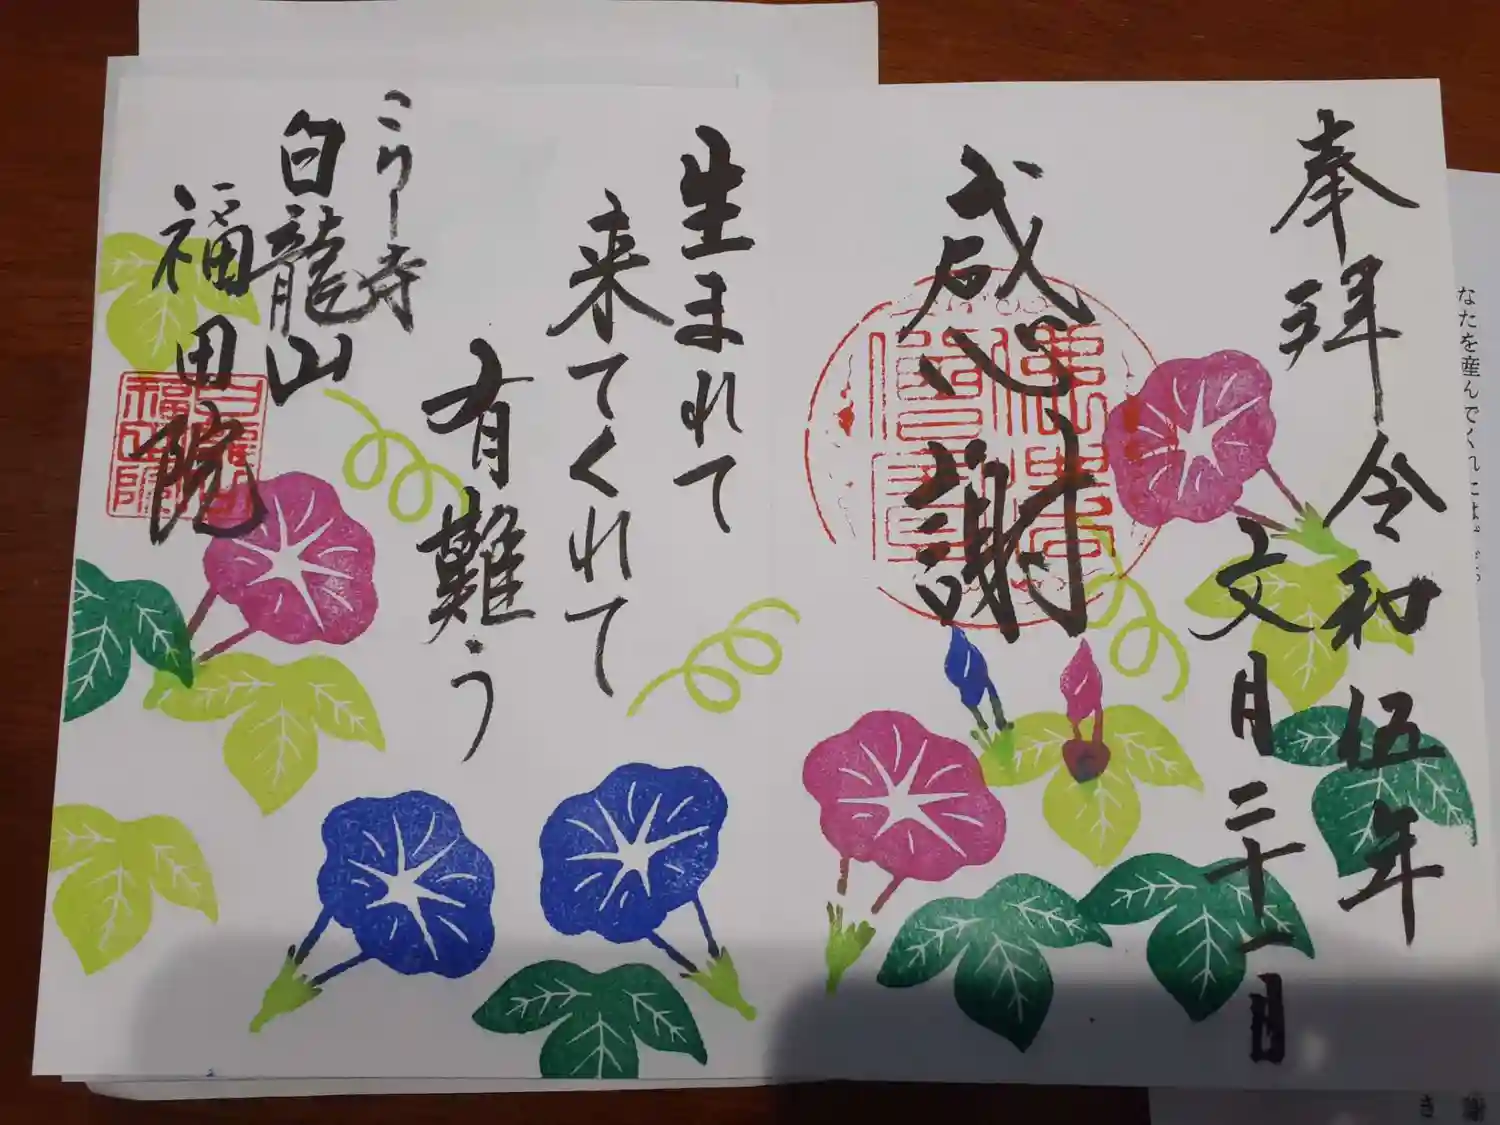 奉拝
令和伍年
文月二十一日
感謝
生まれて
来てくれて
有難う
こりー寺
白龍山
福田院
なたを産んでくれたは
謝
さ